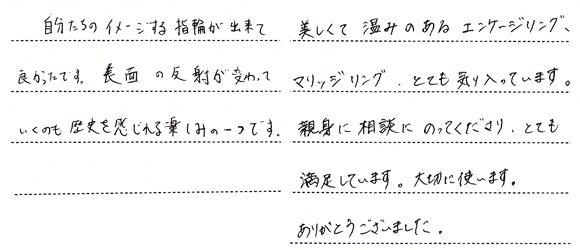 自分たちのイメージする指輪が出来て
良かったです。表面の反射が変わって
いくのも歴史を感じれる楽しみの一つです。
美しくて温みのあるエンゲージリング、
マリッジリング、とても気り入っています。
親身に相談にのってくださり、とても
満足しています。大切に使います。
ありがとうございました。